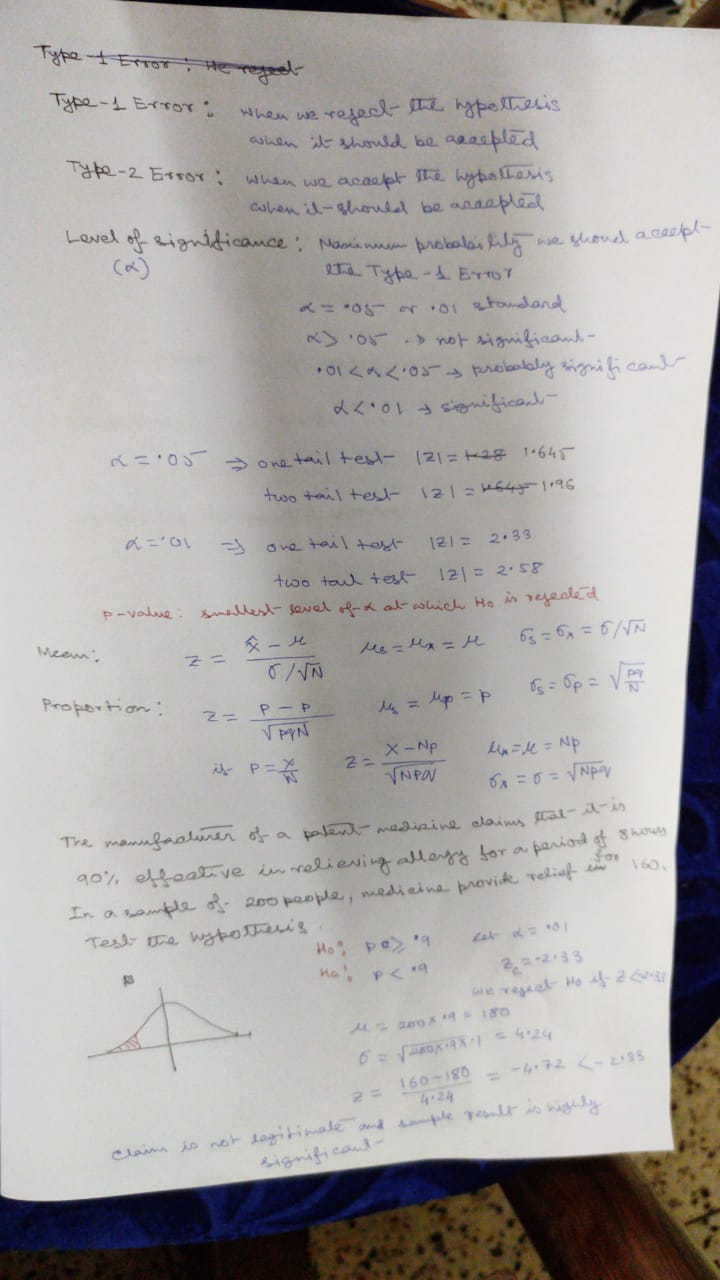 Type-1 Error : We reject
Type-1 Error : when we reject the hypothesis
when it should be accepted
Type-2 Error : when we accept the hypothesis
when it should be accepted
Level of significance : Maximum probability we should accept
(α) the Type-1 Error
α = .05 or .01 standard
α > .05 → not significant
.01 < α < .05 → probably significant
α < .01 → significant
α = .05 ⇒ one tail test |z| = 1.28 1.645
two tail test |z| = 1.645 1.96
α = .01 ⇒ one tail test |z| = 2.33
two tail test |z| = 2.58
p-value : smallest level of α at which Ho is rejected
Mean : z = (x̂ - μ) / (σ/√N) μs = μx = μ σs = σx = σ/√N
Proportion : z = (P - p) / √pqN μs = μp = p σs = σp = √(pq/N)
is P = X/N z = (X - Np) / √Npq μx = μ = Np
σx = σ = √Npq
The manufacturer of a patent medicine claims that it is
90% effective in relieving allergy for a period of 8 hours
In a sample of 200 people, medicine provide relief in for 160.
Test the hypothesis.
Ho : p ≥ .9 Let α = .01
Ha : p < .9 zc = -2.33
we reject Ho if z < -2.33
μ = 200 x .9 = 180
σ = √200x.9x.1 = 4.24
z = (160-180) / 4.24 = -4.72 < -2.33
Claim is not legitimate and sample result is highly
significant